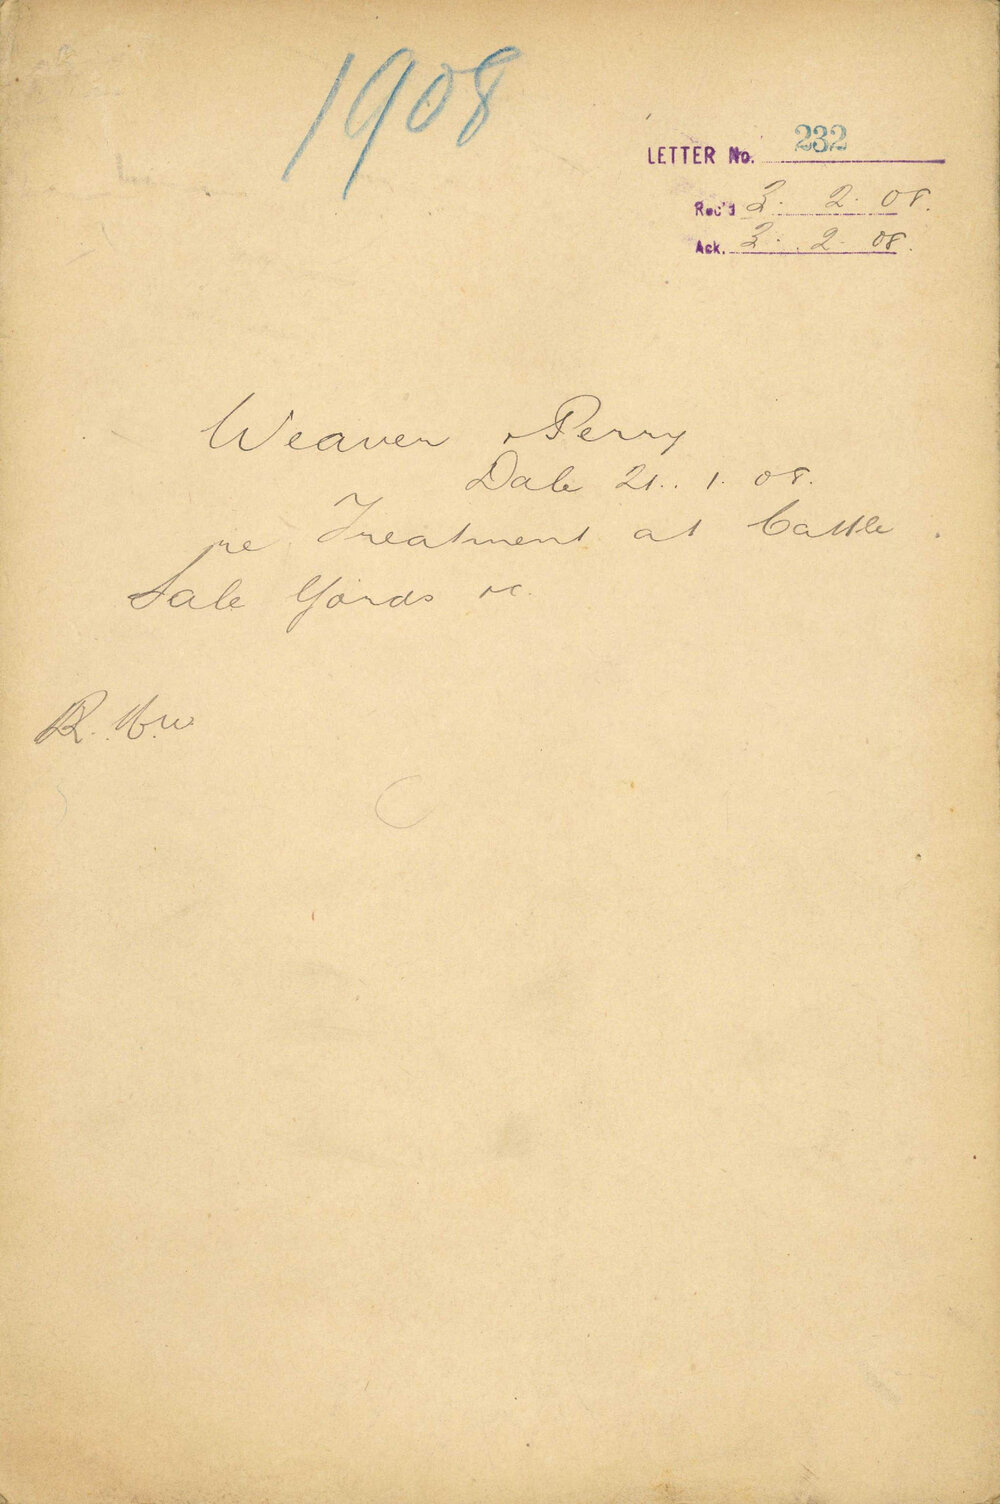 1908
LETTER No. 232
Rec'd 3. 2. 08.
Ack. 3. 2. 08.
Weaver & Perry
Date 21. 1. 08.
re Treatment at Cattle
Sale Yards &c.